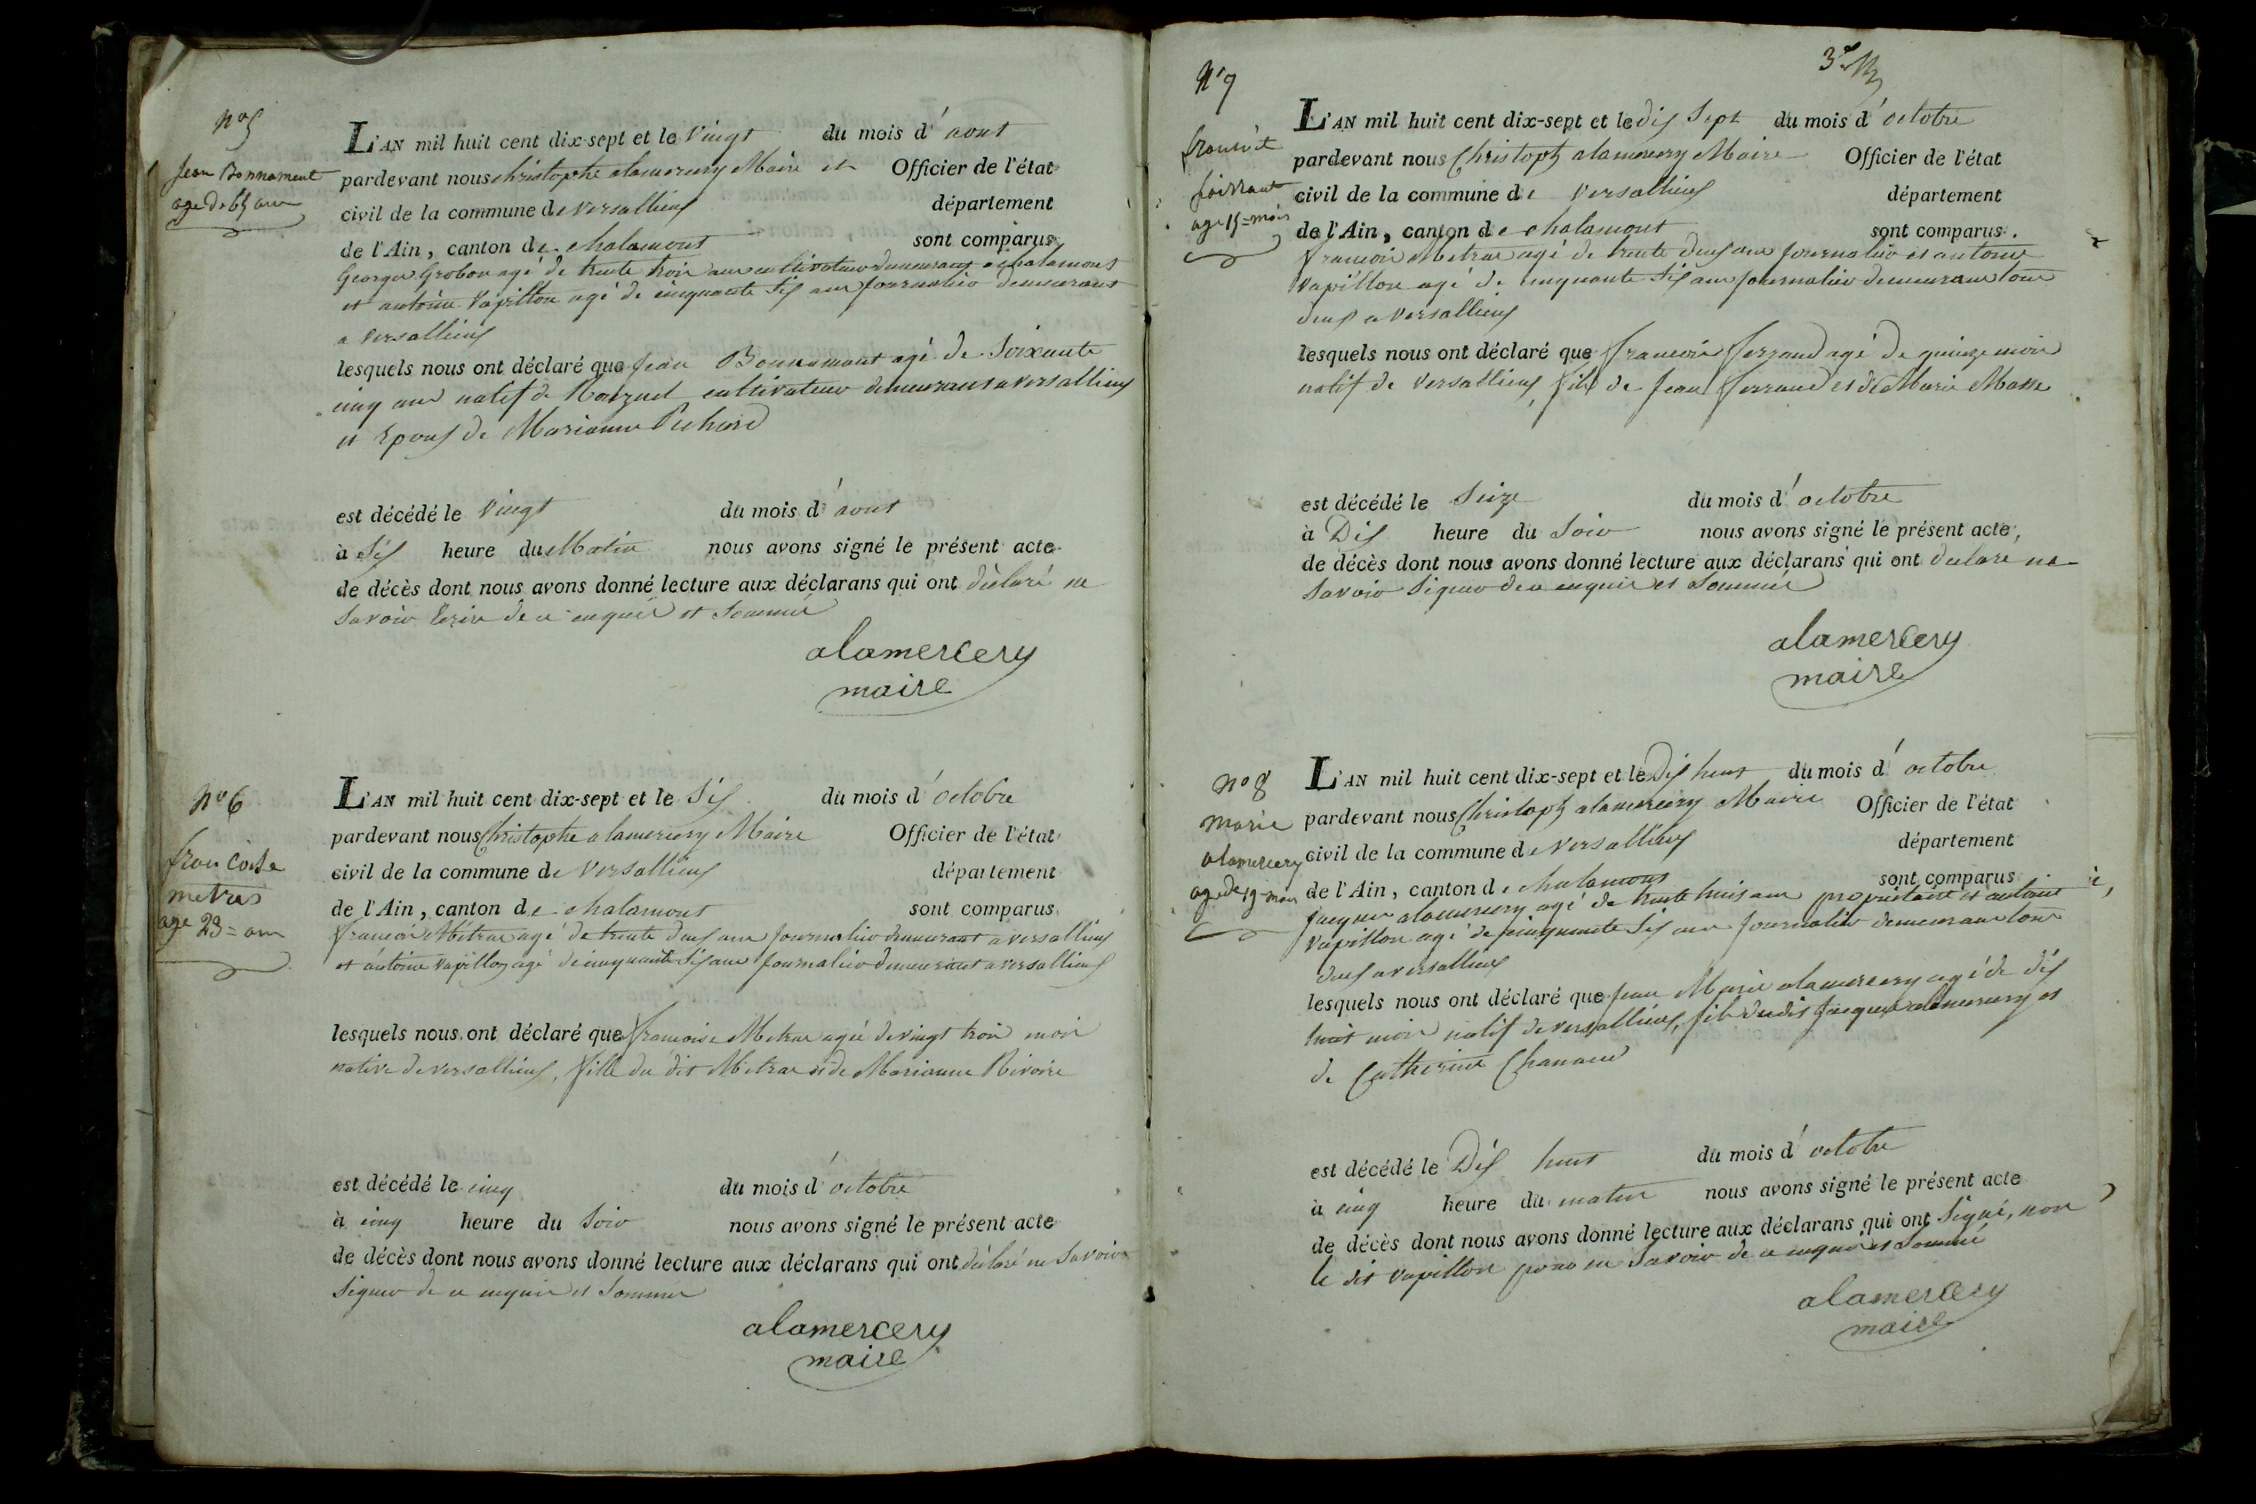 No 5
Jean Bonnament
age de 65 ans
L'AN mil huit cent dix-sept et le vingt du mois d'aout
pardevant nous christophe alamercery Maire et Officier de l'état
civil de la commune de versallieux département
de l'Ain, canton de chalamont sont comparus
George Grobon agé de trente trois ans cultivateur demeurant a chalamont
et antoine Vapillon agé de cinquante six ans journalier demeurant
a versallieux
lesquels nous ont déclaré que jean Bonnamant agé de Soixante
cinq ans natif de cultivateur demeurant a versallieux
et Epoux de Marianne Pichard
est décédé le vingt du mois d'aout
à Six heure du Matin nous avons signé le présent acte
de décès dont nous avons donné lecture aux déclarans qui ont déclaré ne
Savoir Ecrire de ce enquis et Sommé
alamercery
maire
No 6
metras
age 23 = am
L'AN mil huit cent dix-sept et le Six du mois d'octobre
pardevant nous Christophe alamercery Maire Officier de l'état
civil de la commune de Versallieux département
de l'Ain, canton de chalamont sont comparus
francois Métras agé de trente deux ans journalier demeurant a versallieux
et antoine vapillon agé de cinquante Six ans journalier demeurant a versallieux
lesquels nous ont déclaré que francoise Metras agée de vingt trois mois
native de versallieux, fille du dit Metras et de Marianne Rivoire
est décédé le cinq du mois d'octobre
à cinq heure du Soir nous avons signé le présent acte
de décès dont nous avons donné lecture aux déclarans qui ont déclaré ne Savoir
Signer de ce enquis et Sommer
alamercery
maire
3e
No 7
age 15 = mois
L'AN mil huit cent dix-sept et le dix Sept du mois d'octobre
pardevant nous Christoph alamercery Maire Officier de l'état
civil de la commune de versallieux département
de l'Ain, canton de chalamont sont comparus
francois Metras agé de trente deux ans journalier et antoine
vapillon agé de cinquante Six ans journalier demeurant tous
deux a versallieux
lesquels nous ont déclaré que francois ferrand agé de quinze mois
natif de versallieux, fils de jean ferrand et de Marie Masse
est décédé le Seize du mois d'octobre
à Dix heure du Soir nous avons signé le présent acte,
de décès dont nous avons donné lecture aux déclarans qui ont declare ne
Savoir Signer de ce enquis et Sommé
alamercery
maire
No 8
marie
alamercery
age de 19 = mois
L'AN mil huit cent dix-sept et le Dix huit du mois d'octobre
pardevant nous Christoph alamercery Maire Officier de l'état
civil de la commune de versallieux département
de l'Ain, canton de chalamont sont comparus
jacques alamercery agé de trente huit ans propriétaire et antoine
vapillon agé de cinquante Six ans journalier demeurant tous
deux a versallieux
lesquels nous ont déclaré que jean Marie alamercery agé de dix
huit mois natif de versallieux, fils dudit jacques alamercery et
de Catherine
est décédé le Dix huit du mois d'octobre
à cinq heure du matin nous avons signé le présent acte
de décès dont nous avons donné lecture aux déclarans qui ont Signé, non
le dit vapillon pour ne Savoir de ce enquis et Sommé
alamercery
maire